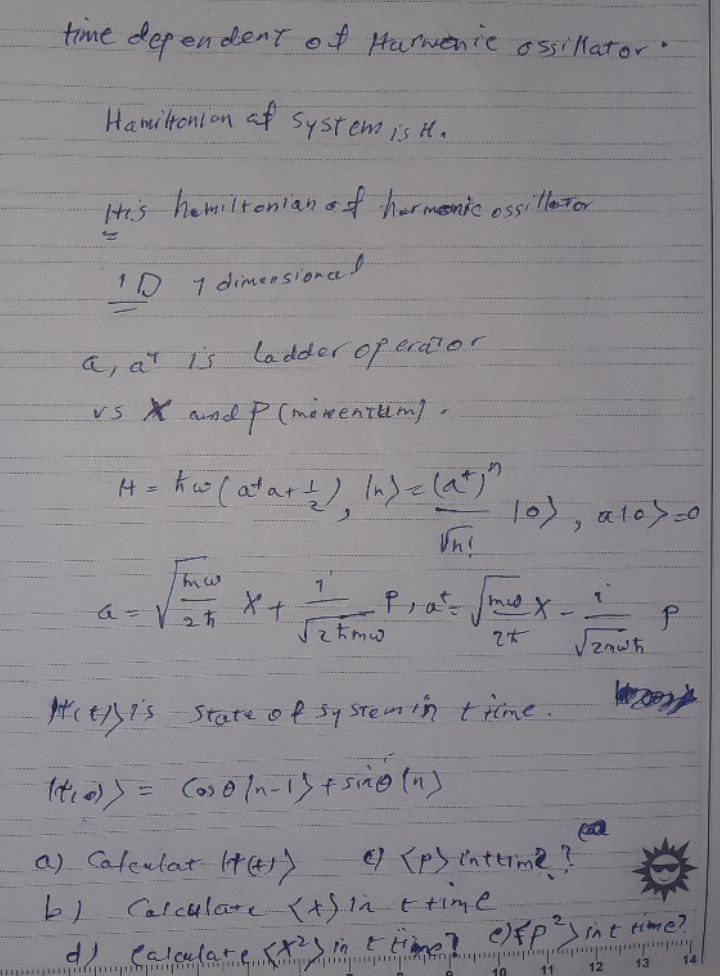 time dependent of Harmonic ossillator.
Hamiltonian of system is H.
H is hamiltonian of harmonic ossillator
1D 1 dimensional
a, a† is ladder operator
vs X and P (momentum).
H = ħω(a†a+1/2), |n> = (a†)^n/√n! |0>, a|0>=0
a = √(mω/2ħ) X + i/√(2ħmω) P, a† = √(mω/2ħ) X - i/√(2mωħ) P
|ψ(t)> is state of system in t time.
|ψ(0)> = Cosθ|n-1> + sinθ|n>
a) Calculat |ψ(t)> c) <p> in t time?
b) Calculate <x> in t time
d) calculate <X²> in t time? e) <p²> in t time?
9 10 11 12 13 14